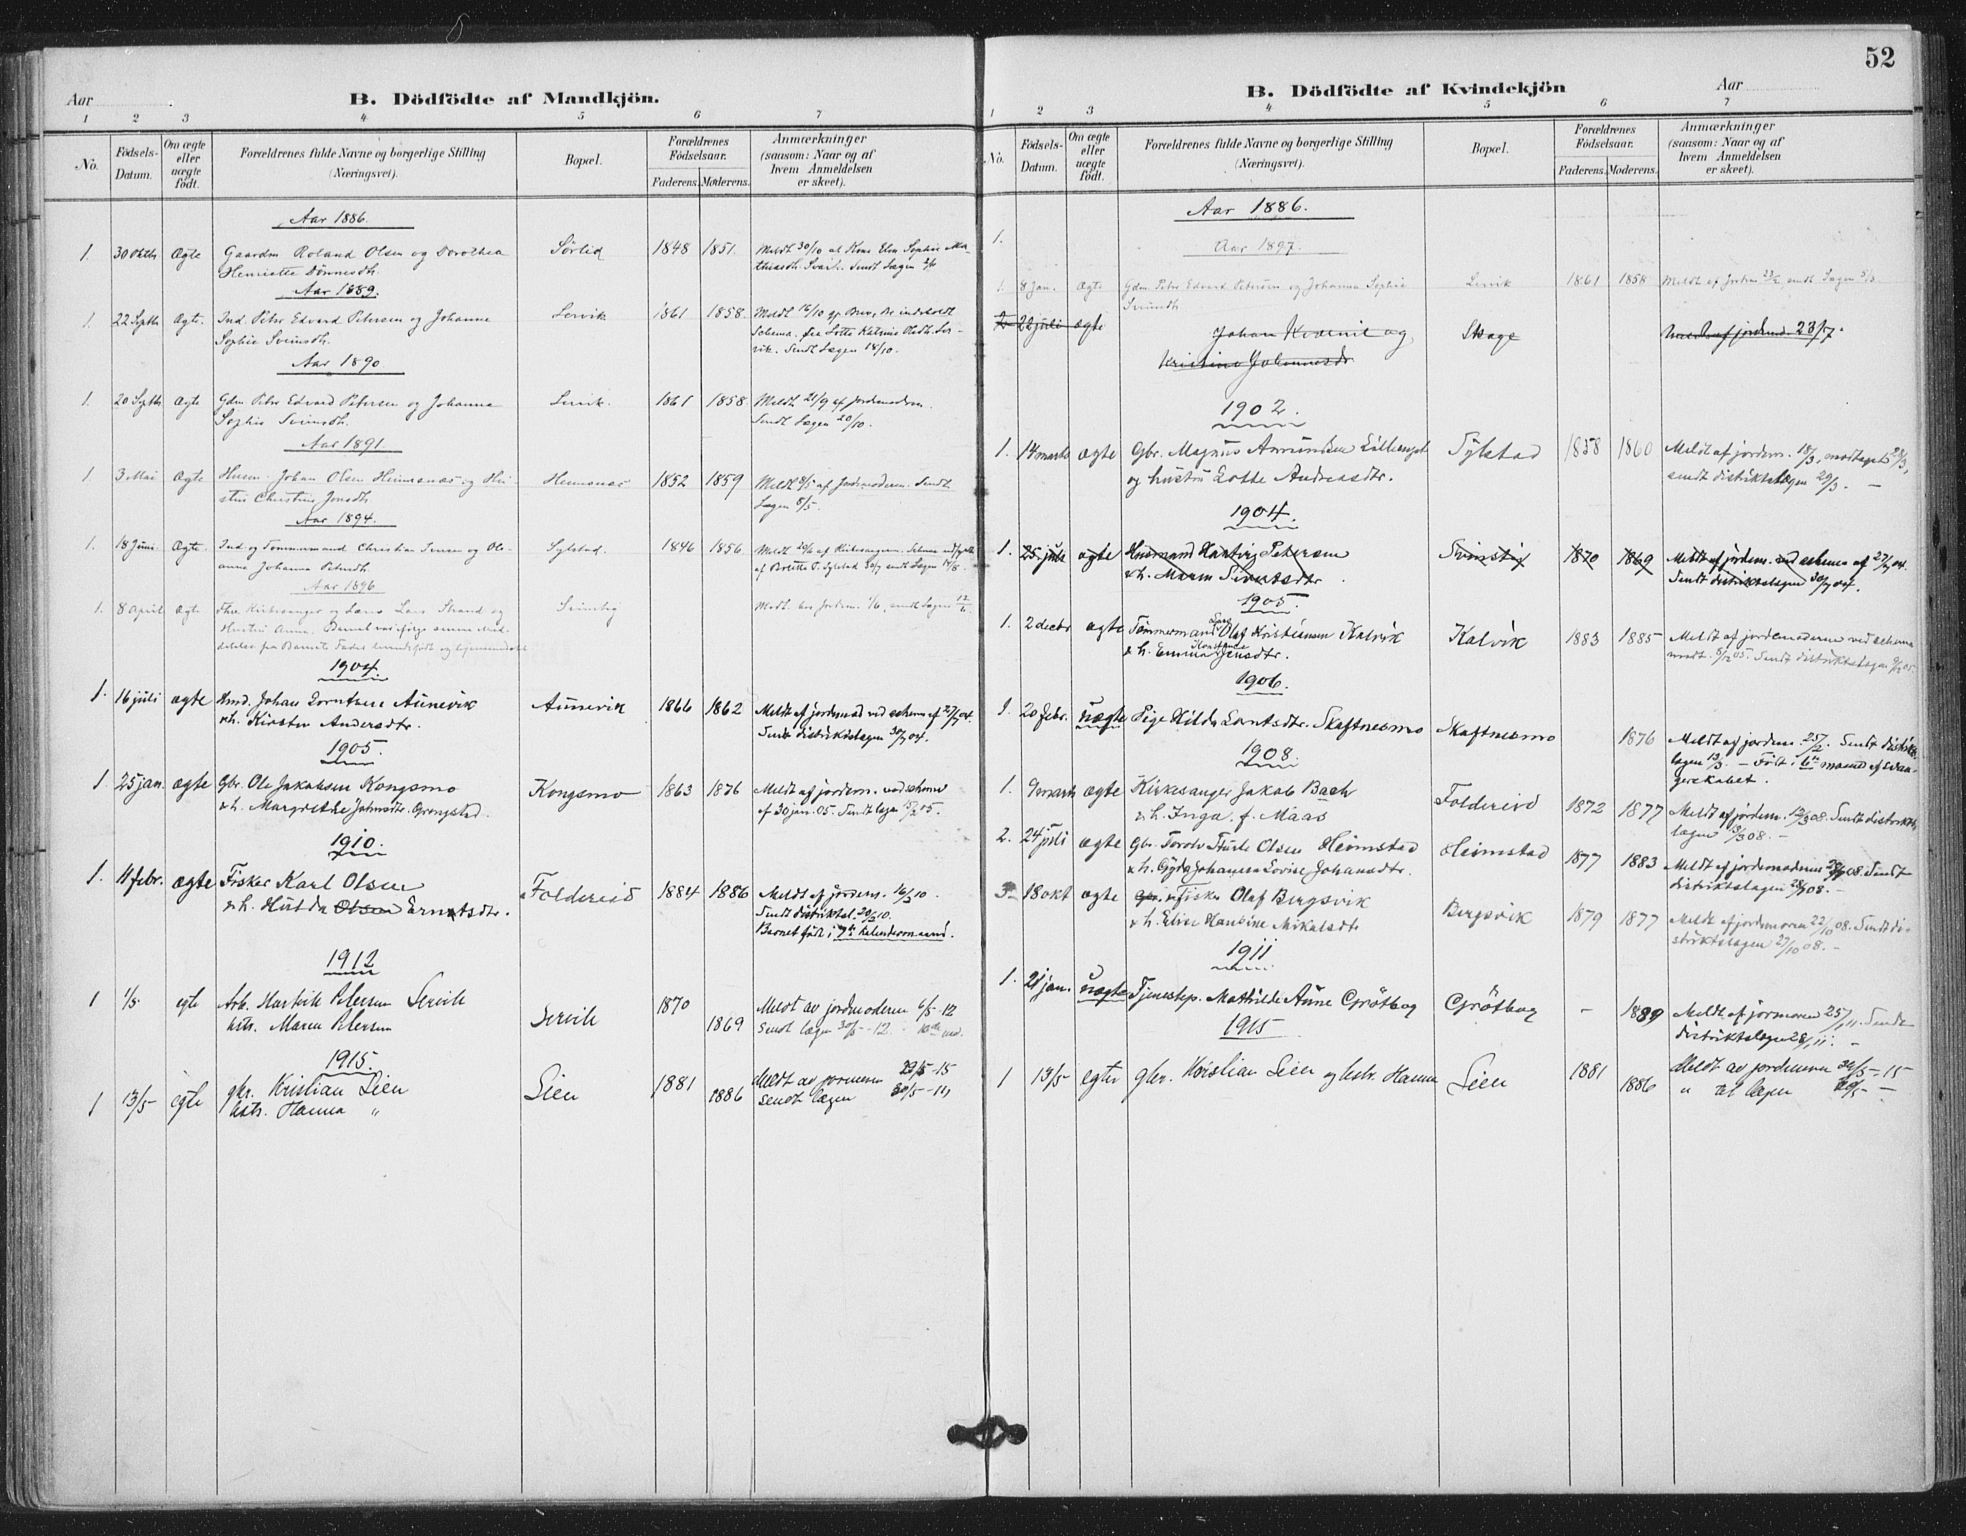 52
Aar
B. Dödfödte af Mandkjön.
1 2 3 4 5 6 7
No.
Födsels-Datum.
Om ægte eller uægte födt.
Forældrenes fulde Navne og borgerlige Stilling (Næringsvei).
Bopæl.
Forældrenes Födselsaar.
Faderens. Moderens.
Anmærkninger (saasom: Naar og af hvem Anmeldelsen er skeet).
Aar 1886.
1. 30 Oktb Ægte Gaardm Roland Olsen og Dorothea Sørlid 1848 1851. Meldt 30/10 af
Henriette Dønnesdtr.
Aar 1889.
1. 22 Septb Ægte. Ind. Peter Edvard Petersen og Johanna Servik 1861 1858. Meldt 16/10
Sophie Svinsdtr. Sendt Lægen 18/10.
Aar 1890
1. 20 Septb Ægte Gdm. Peter Edvard Petersen og Johanna Servik. 1861 1858. Meldt 21/9 af Jordemoderen.
Sophie Svinsdtr. Sendt Lægen 20/10.
Aar 1891.
1. 3 Mai Ægte Husm. Johan Olsen Heimsnæs og Hu- Heimsnæs 1852 1859 Meldt 8/5 af Jordmoderen. Sendt
stru Christine Jonsdtr. Lægen 8/5.
Aar 1894.
1. 18 Juni Ægte. Ind. og Tømmermand Christian Iversen og Ol- Sylstad. 1846 1856.
anna Johanna Petersdtr.
Aar 1896
1. 8 April ægte Kirkesanger og Lærer Lars Strand og Svinstig
Hustru Anna.
1904.
1. 16 juli ægte Hmd. Johan Lorntsen Aunevik Aunevik 1866 1862 Meldt af jordemod ved schema af 27/7 04.
& h. Kirsten Andersdtr. Sendt distriktslægen 30/7 04.
1905.
1 25 jan. ægte Gbr. Ole Jakobsen Kongsmo Kongsmo 1863 1876 Meldt af jordem. ved schema
& h. Margrethe Grongstad. af 30 jan. 05. Sendt lægen 15/2 05.
1910.
1. 11 febr. ægte Fisker Karl Olsen Foldereid 1884 1886 Meldt af jordem. 16/3 10.
& h. Hulda Olsen Erntsdtr. Sendt distriktsl. 20/3 10.
Barnet født i 7de kalendermaaned.
1912
1 1/5 egte Arb. Hartvik Petersen Servik Servik 1870 Meldt av jordmoderen 6/5-12
hstr. Maren Petersen 1869 Sendt lægen 30/5-12.
1915.
1 13/5 egte gbr. Kristian Lien Lien 1881 Meldt av jormoren 29/5-15
hstr. Hanna " 1886 sendt lægen 30/5-15
B. Dödfödte af Kvindekjön
Aar
1 2 3 4 5 6 7
No.
Födsels-Datum.
Om ægte eller uægte födt.
Forældrenes fulde Navne og borgerlige Stilling (Næringsvei).
Bopæl.
Forældrenes Födselsaar.
Faderens. Moderens.
Anmærkninger (saasom: Naar og af hvem Anmeldelsen er skeet).
Aar 1886.
1.
Aar 1897.
1. 8 Jan. Ægte Gdm. Peter Edvard Petersen og Johanna Sophie Servik 1861 1858 Meldt af Jordem 23/2 sendt Lægen 5/3
Svinsdtr
2 22 juli ægte Johan Kvernil og Skage Meldt af jordmd. 23/7.
Kristine Johannesdr
1902.
1. 14 marts ægte Gbr. Magnus Amundsen Sylstad 1858 1860 Meldt af jordem. 18/3, modtaget 28/3,
og hustru Lotte Andreasdtr. sendt distriktslægen 29/3. —
1904.
1. 25 juli ægte Husmand Hartvig Petersen Svinstig 1870 1869 Meldt af jordem. ved schema af 27/7 04.
& h. Maren Sivertsdtr. Sendt distriktslægen 30/7 04.
1905.
1. 2 decbr ægte Tømmermand Olaf Kristiansen Kalvik Kalvik 1883 1885 Meldt af jordemoderen ved schema
& h. Emma Jensdtr. modt. 5/12 05. Sendt distriktslægen 9/12 05.
1906.
1. 20 febr. uægte Pige Hilda Lorntsdtr. Skaftnesmo Skaftnesmo 1876 Meldt af jordem. 25/2. Sendt distrikts-
lægen 13/3. — Født i 6te maaned af svan-
gerskabet.
1908.
1. 9 marts ægte Kirkesanger Jakob Bach Foldereid 1872 1877 Meldt af jordem. 12/3 08. Sendt distrikts-
& h. Inga f. Maas lægen 13/3 08. —
2. 24 juli ægte Gbr. Torolv Sturle Olsen Heimstad Heimstad 1877 1883 Meldt af jordemoderen 28/7 08. Sendt
& h. Gyda Johanna Lovise Johansdtr. distriktslægen 28/7 08. —
3 18 okt ægte Fisker Olaf Bergsvik Bergsvik 1879 1877 Meldt af jordmoren 22/10 08. Sendt di-
& h. Elise Haubine Mikalsdtr striktslægen 27/10 08. —
1911
1. 21 jan. uægte Tjenestep. Mathilde Anne Grötbog Grötbog – 1889 Meldt af jormoren 25/1 11. Sendt
distriktslægen 28/1 11. —
1915
1 13/5 egte gbr. Kristian Lien og hstr. Hanna Lien 1881 1886 Meldt av jordmoren 29/5-15
" til lægen 30/5 –